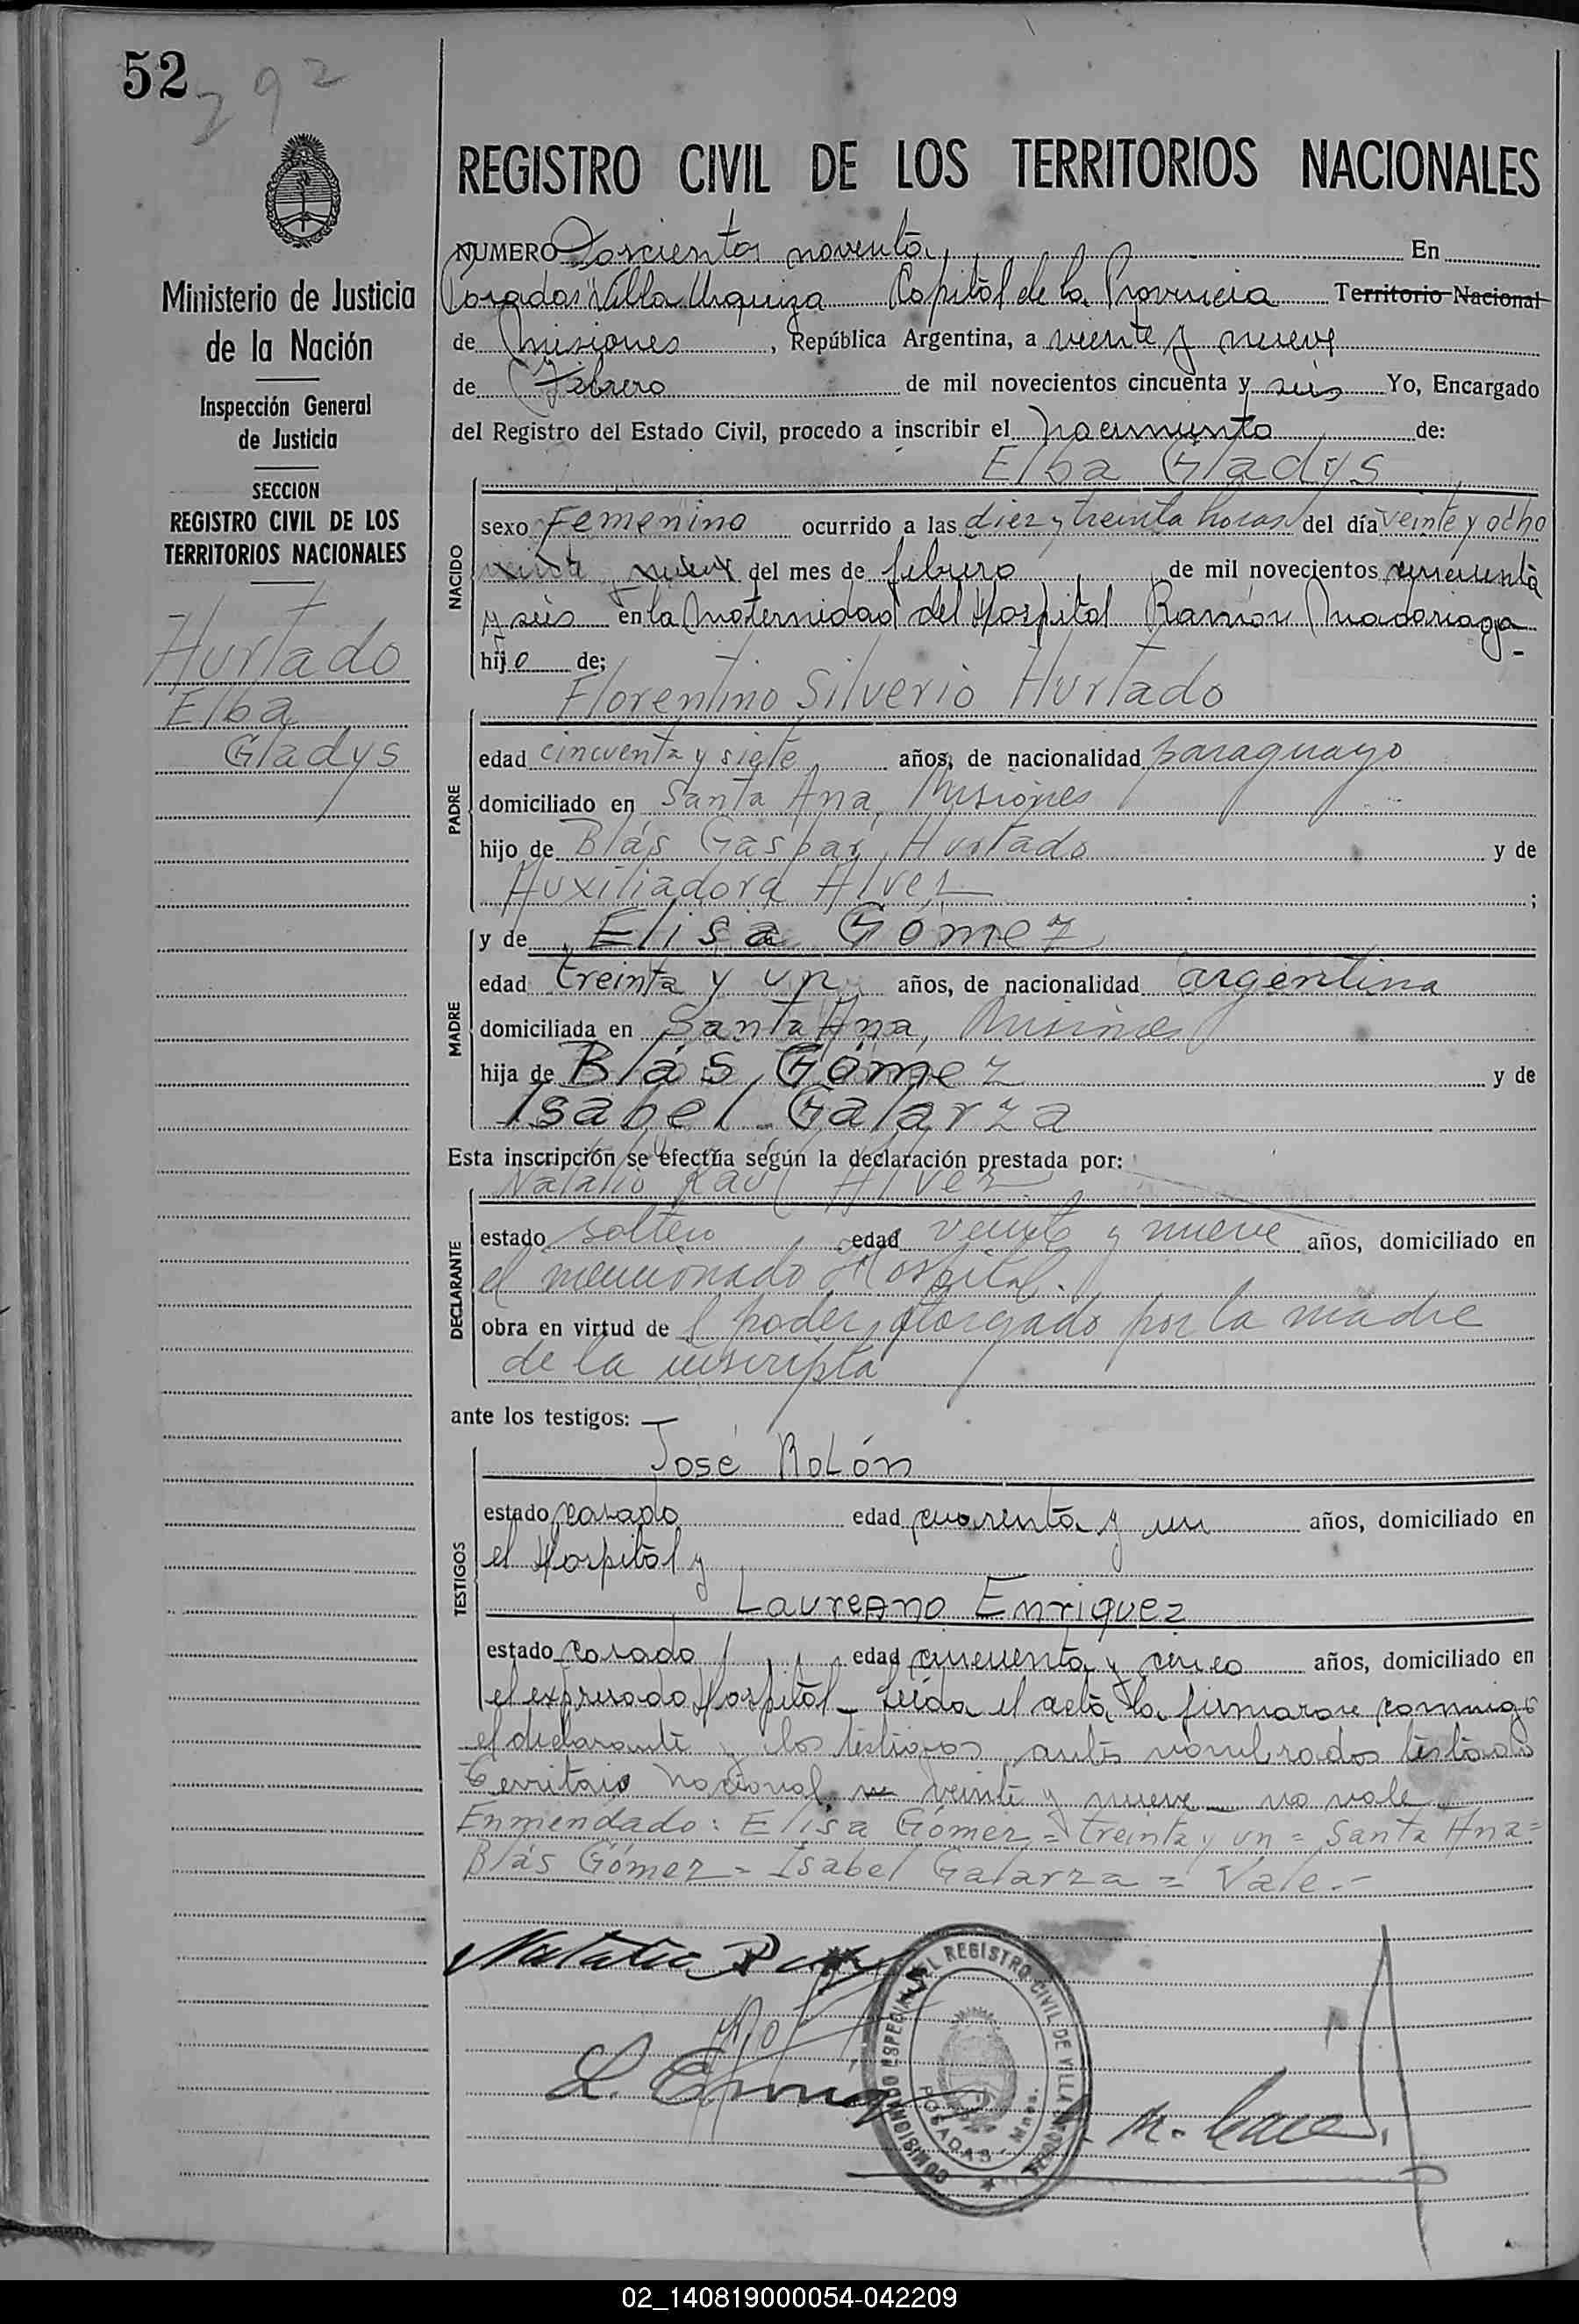 52
292
Ministerio de Justicia
de la Nación
Inspección General
de Justicia
SECCION
REGISTRO CIVIL DE LOS
TERRITORIOS NACIONALES
Hurtado
Elba
Gladys
REGISTRO CIVIL DE LOS TERRITORIOS NACIONALES
NUMERO Doscientos noventa, En
Posadas Villa Urquiza Capital de la Provincia Territorio Nacional
de Misiones, República Argentina, a veinte y nueve
de Febrero de mil novecientos cincuenta y seis Yo, Encargado
del Registro del Estado Civil, procedo a inscribir el nacimiento de:
Elba Gladys
NACIDO
sexo Femenino ocurrido a las diez y treinta horas del día veinte y ocho
veinte y nueve del mes de febrero de mil novecientos cincuenta
y seis en la Maternidad del Hospital Ramón Madariaga-
hij de;
Florentino Silverio Hurtado
PADRE
edad cincuenta y siete años, de nacionalidad paraguayo
domiciliado en Santa Ana, Misiones
hijo de Blás Gaspar Hurtado y de
Auxiliadora Alvez;
MADRE
y de Elisa Gómez
edad treinta y un años, de nacionalidad argentina
domiciliada en Santa Ana, Misiones
hija de Blás Gómez y de
Isabel Galarza
Esta inscripción se efectúa según la declaración prestada por:
Natalio Raúl Alvez
DECLARANTE
estado soltero edad veinte y nueve años, domiciliado en
el mencionado Hospital.
obra en virtud de l poder otorgado por la madre
de la inscripta
ante los testigos:
José Rolón
TESTIGOS
estado casado edad cuarenta y un años, domiciliado en
el Hospital y
Laureano Enriquez
estado casado edad cincuenta y cinco años, domiciliado en
el expresado Hospital_ Leída el acta, la firmaron conmigo
el declarante y los testigos antes nombrados testado
Territorio Nacional, veinte y nueve_ no vale
Enmendado: Elisa Gómez = treinta y un = Santa Ana =
Blás Gómez = Isabel Galarza = Vale.-
Natalio R
L. Enriq
COMISIONADO ESPECIAL DEL REGISTRO CIVIL DE VILLA URQUIZA
POSADAS Mnes.
02_140819000054-042209